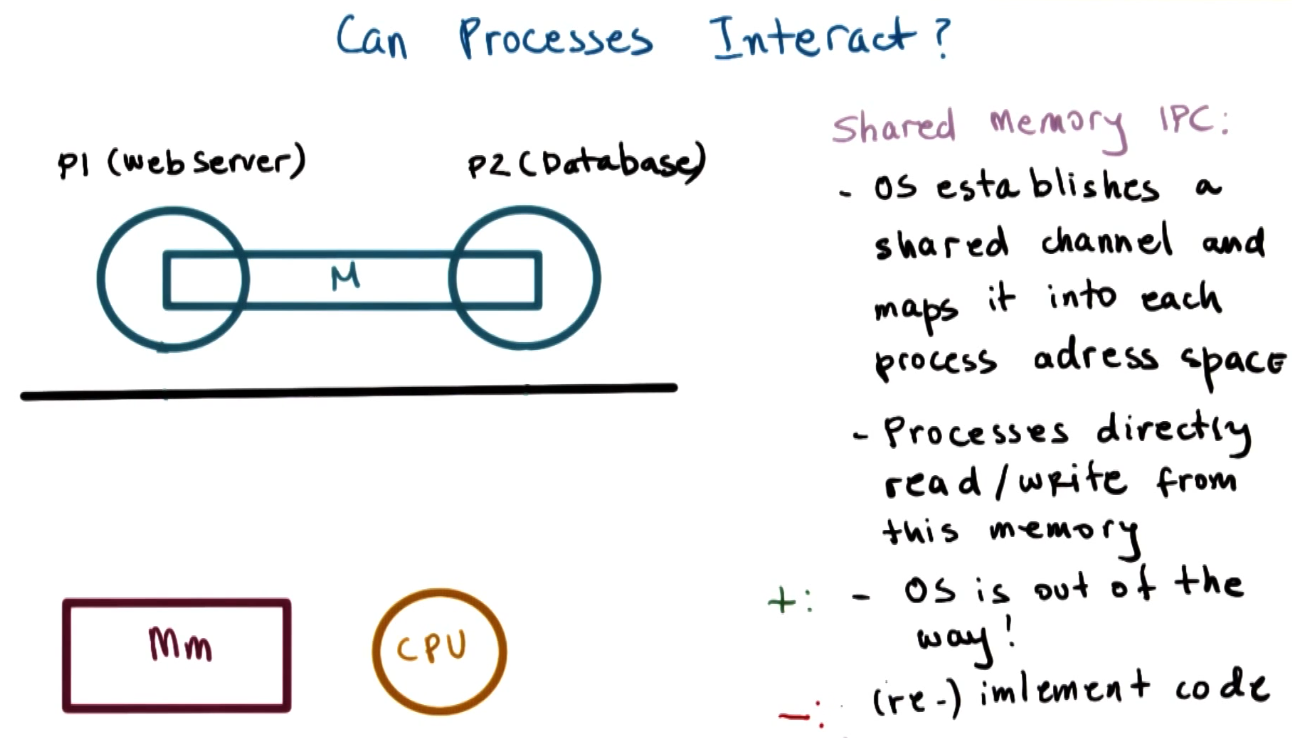 Can Processes Interact?
P1 (Web Server)
P2 (Database)
M
Mm
CPU
Shared Memory IPC:
- OS establishes a
shared channel and
maps it into each
process adress space
- Processes directly
read/write from
this memory
+: - OS is out of the
way!
-: (re-) imlement code